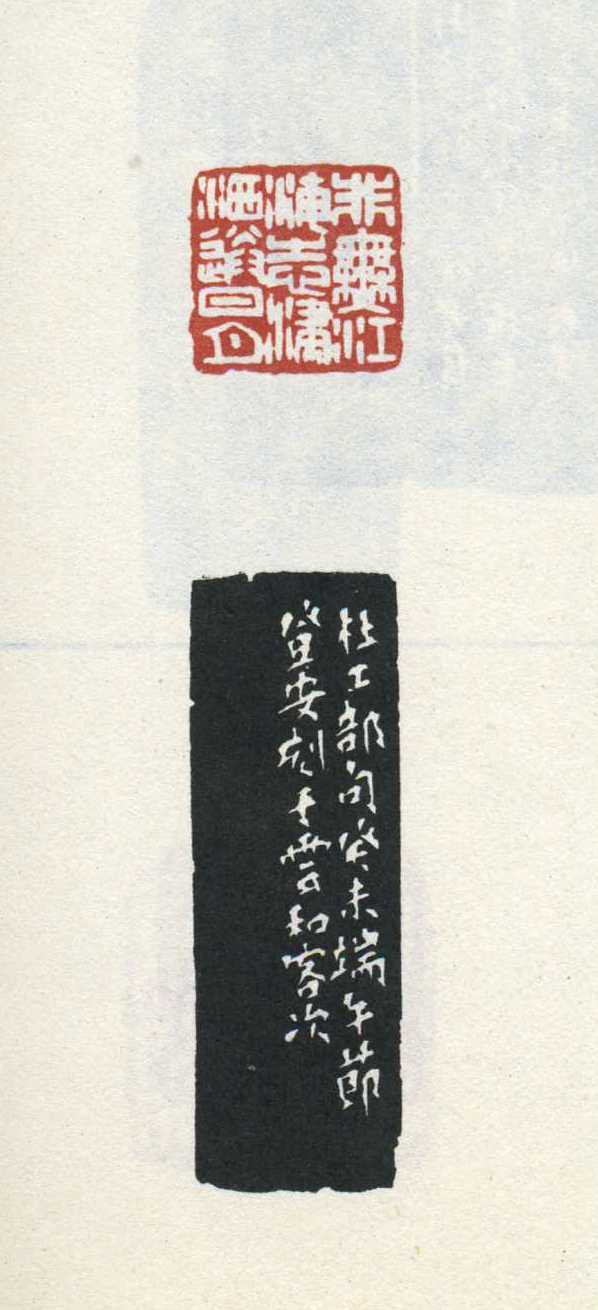 非無江
海志潚
洒送日月
杜工部句癸未端午節
登安刻于雲和客次